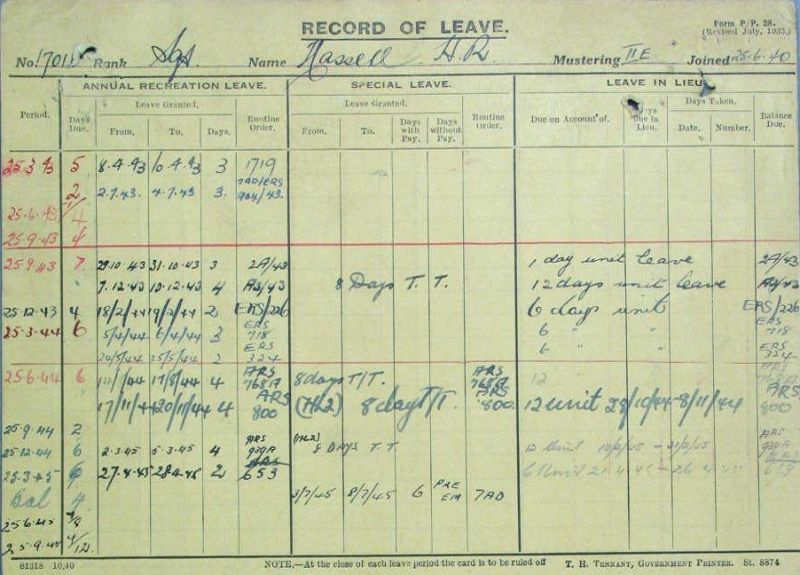 RECORD OF LEAVE.
Form P/P. 28.
(Revised July, 1933.)
No. Rank Sgt. Name Hassell H.R. Mustering IIE Joined 25.6.40
ANNUAL RECREATION LEAVE. SPECIAL LEAVE. LEAVE IN LIEU
Period. Days Due. Leave Granted. Routine Order. Leave Granted. Routine Order. Due on Account of. Days Due in Lieu. Days Taken. Balance Due.
From. To. Days. From. To. Days with Pay. Days without Pay. Date. Number.
25.3.43 5 8.4.43 10.4.43 3 1719
2 2.7.43. 4.7.43 3. 904/43.
25.6.43 4
25.9.43 4
25.9.43 7 29.10.43 31.10.43 3 2A/43 1 day unit leave 2A/43
7.12.43 10.12.43 4 A3/43 8 Days T. T. 12 days unit leave A3/43
25.12.43 4 18/2/44 19/2/44 2 ERS/226 6 days unit ERS/226
25.3.44 6 5/4/44 6/4/44 ERS 718 6 " " ERS 718
24/5/44 25/5/44 2 ERS 324 6 " " ERS 324
25.6.44 6 17/8/44 4 ARS 8 days T/T. ARS 12 ARS
17/11/44 20/11/44 4 ARS 800 (HL2) 8 day T/T. ARS 800. 12 unit 28/10/44 - 8/11/44 ARS 800
25.9.44 2
25.12.44 6 2.3.45 5.3.45 4 ARS (HL2) 8 DAYS T.T 12 Unit
25.3.45 6 27.4.45 28.4.45 2 ARS 653 6 Unit 21.4.45 - 26.4.45 653
Bal 4 3/7/45 8/7/45 6 PRE EM 7AD
25.6.45
25.9.45 4/12
81318 10.40 NOTE.—At the close of each leave period the card is to be ruled off T. H. TENNANT, GOVERNMENT PRINTER. St. 8874